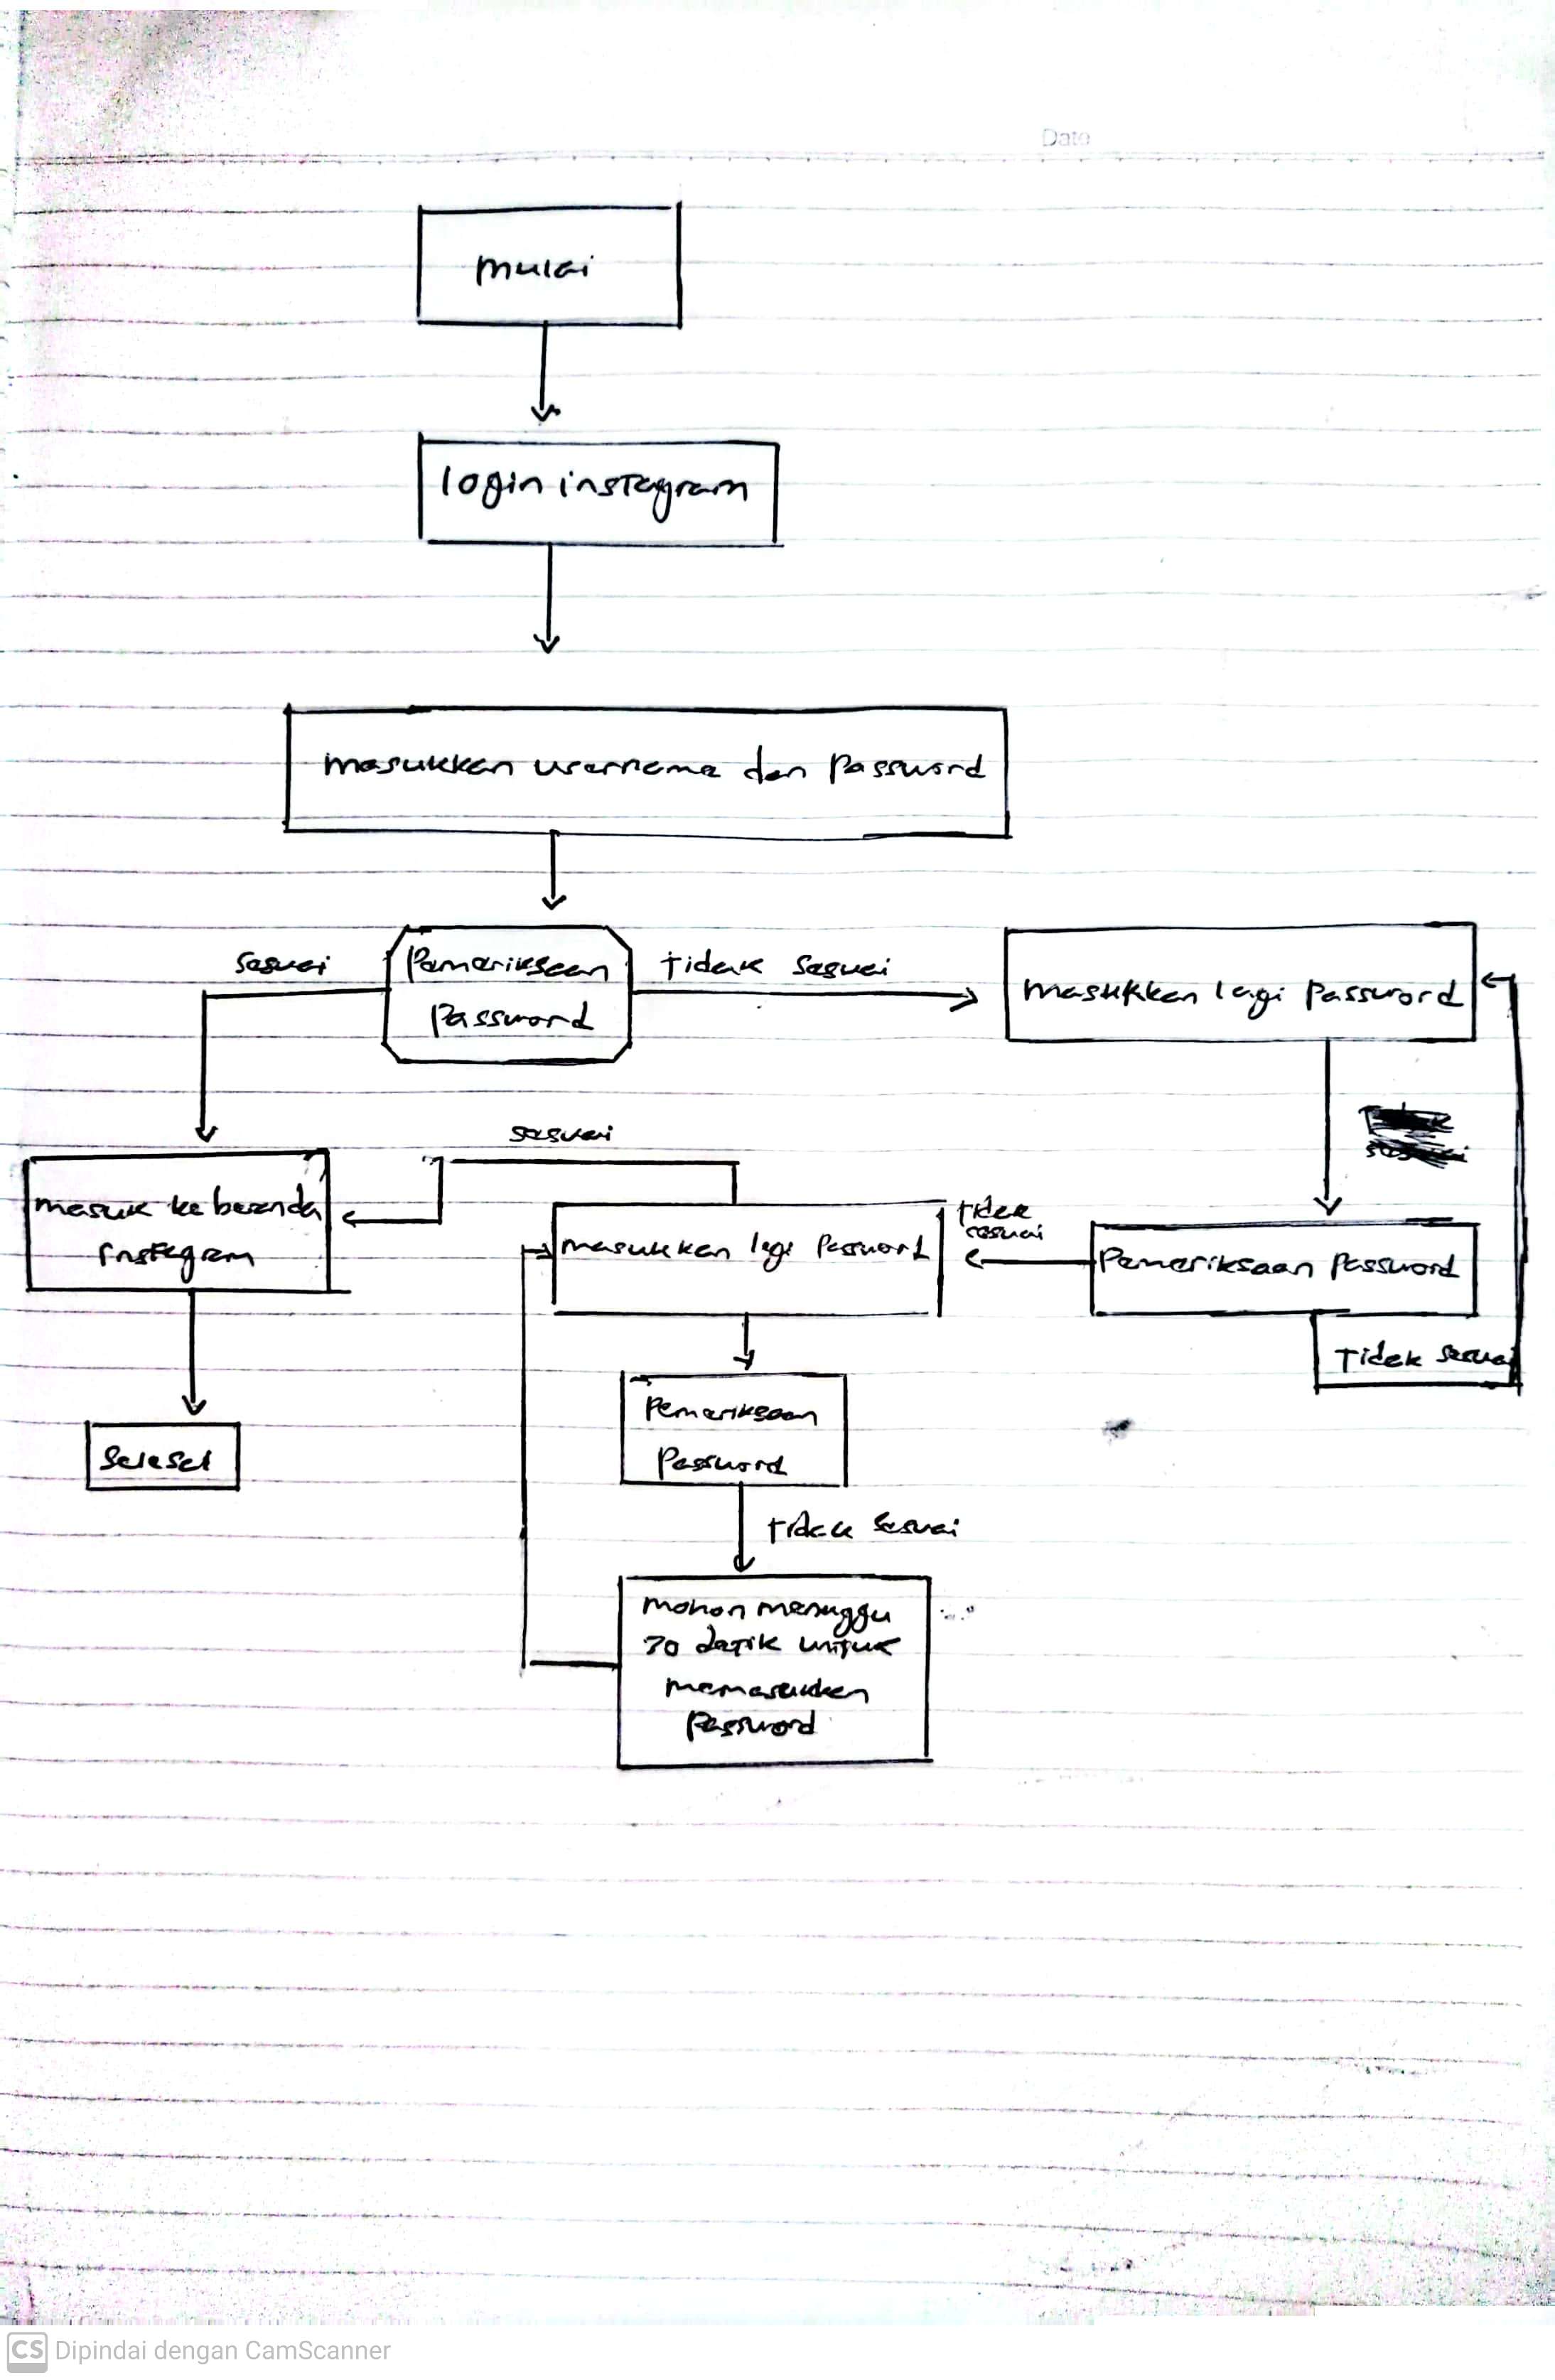 Date
mulai
login instagram
masukkan username dan Password
sesuai
Pemeriksaan
Password
tidak sesuai
masukkan lagi Password
sesuai
masuk ke beranda
instagram
masukkan lagi Password
tidak
sesuai
Pemeriksaan Password
Tidak sesuai
Selesai
Pemeriksaan
Password
tidak sesuai
mohon menunggu
30 detik untuk
memasukkan
Password
CS Dipindai dengan CamScanner